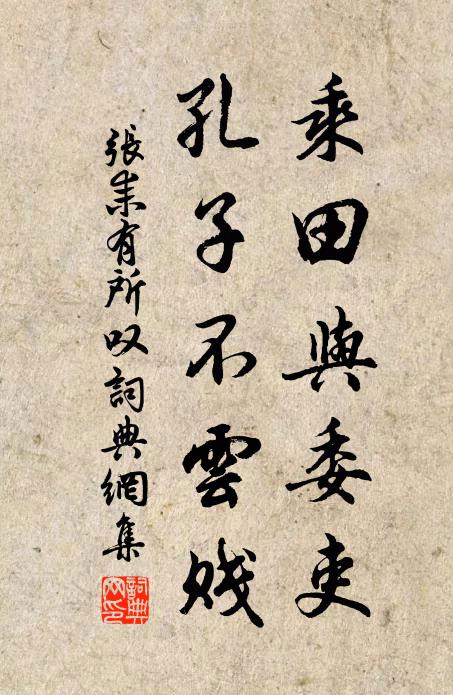 乘田與委吏
孔子不雲賤
張耒有所叹詞典網集
詞典
网印